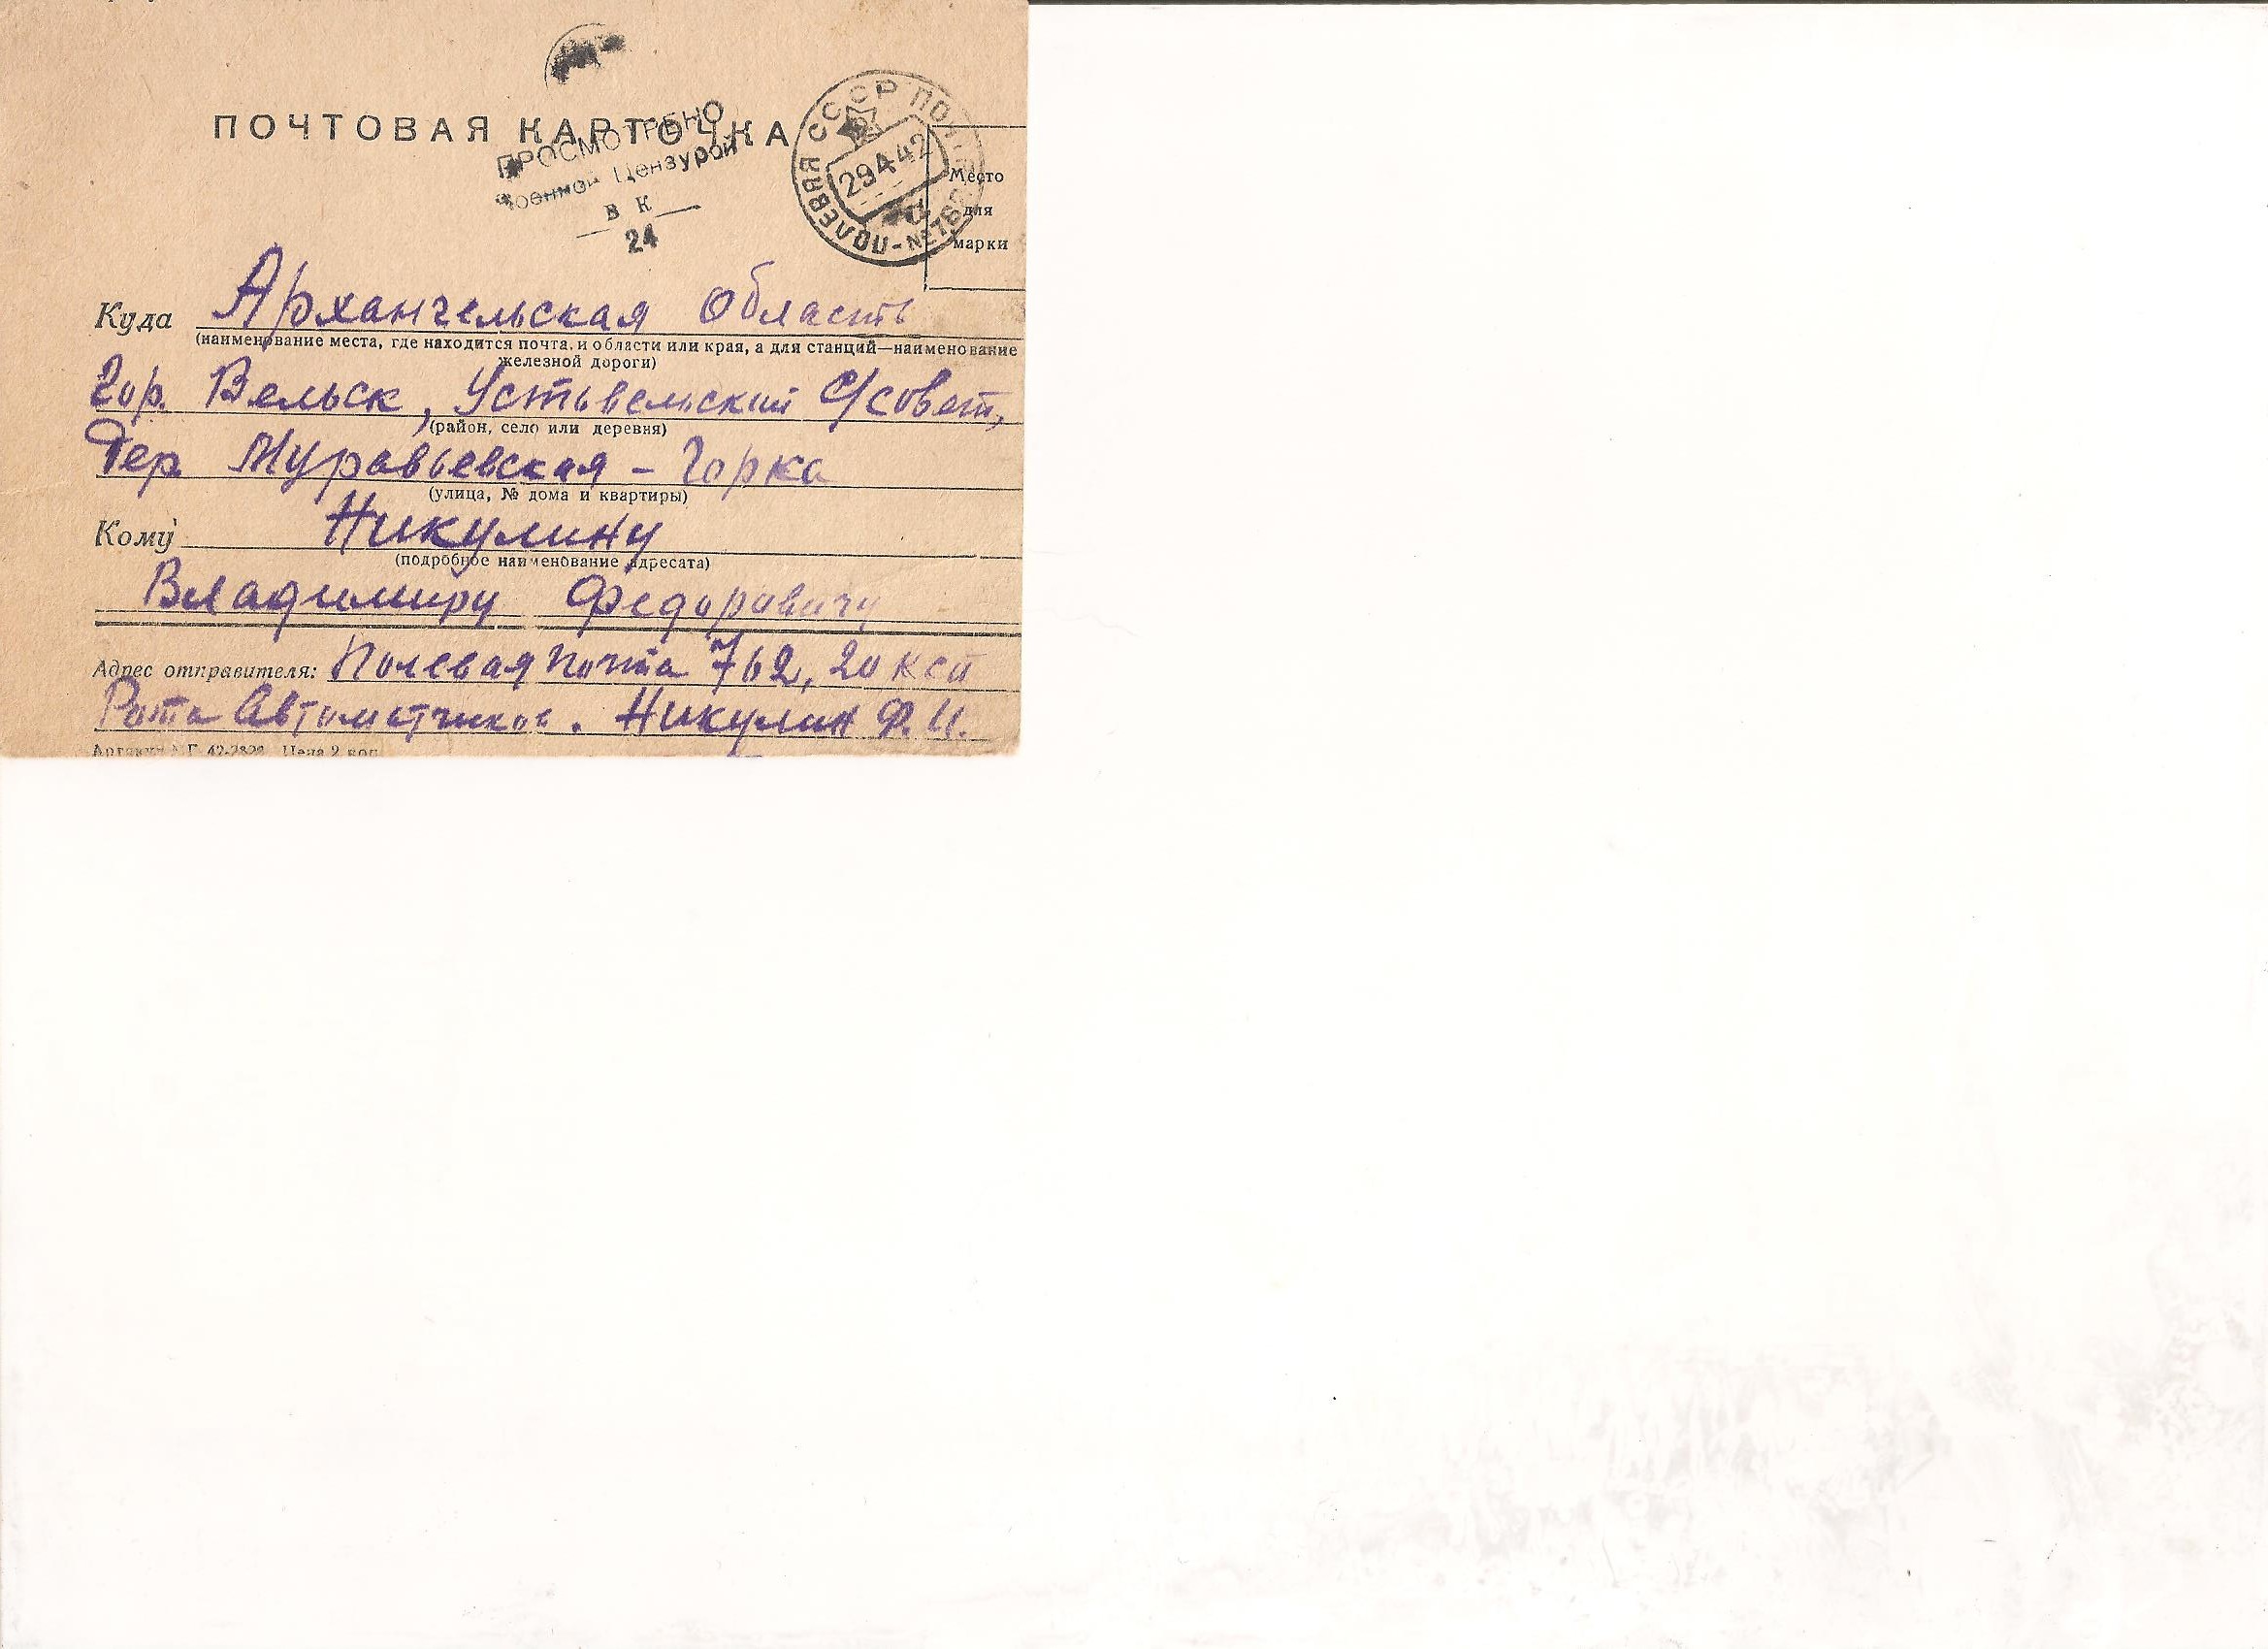 ПОЧТОВАЯ КАРТОЧКА
ПРОСМОТРЕНО
Военной Цензурой
ВК
24
СССР ПОЧТА
ПОЛЕВАЯ
29 4 42
Место
для
марки
Куда Архангельская Область
(наименование места, где находится почта, и области или края, а для станций—наименование
железной дороги)
Гор. Вельск, Устьвельский С/совет,
(район, село или деревня)
Дер. Муравьевская - Горка
(улица, № дома и квартиры)
Кому Никулину
(подробное наименование адресата)
Владимиру Федоровичу
Адрес отправителя: Полевая почта 762, 20
Рота Автоматчиков. Никулин Ф. И.
Цена 2 коп.